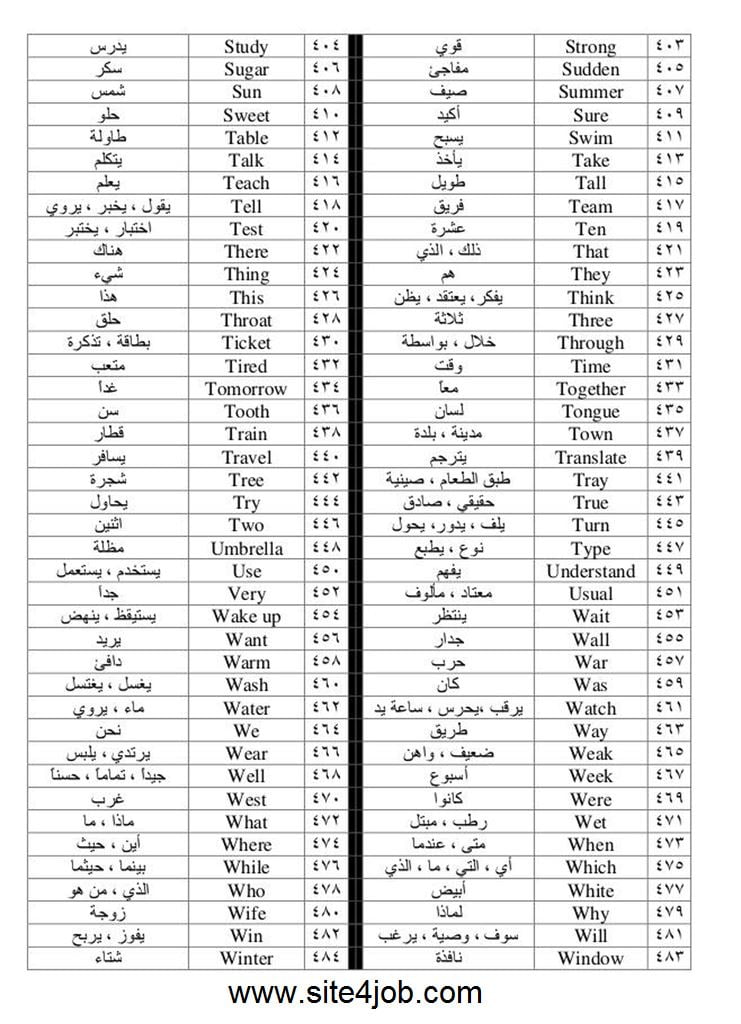 ٤٠٣ Strong قوي ٤٠٤ Study يدرس
٤٠٥ Sudden مفاجئ ٤٠٦ Sugar سكر
٤٠٧ Summer صيف ٤٠٨ Sun شمس
٤٠٩ Sure أكيد ٤١٠ Sweet حلو
٤١١ Swim يسبح ٤١٢ Table طاولة
٤١٣ Take يأخذ ٤١٤ Talk يتكلم
٤١٥ Tall طويل ٤١٦ Teach يعلم
٤١٧ Team فريق ٤١٨ Tell يقول ، يخبر ، يروي
٤١٩ Ten عشرة ٤٢٠ Test اختبار ، يختبر
٤٢١ That ذلك ، الذي ٤٢٢ There هناك
٤٢٣ They هم ٤٢٤ Thing شيء
٤٢٥ Think يفكر، يعتقد ، يظن ٤٢٦ This هذا
٤٢٧ Three ثلاثة ٤٢٨ Throat حلق
٤٢٩ Through خلال ، بواسطة ٤٣٠ Ticket بطاقة ، تذكرة
٤٣١ Time وقت ٤٣٢ Tired متعب
٤٣٣ Together معاً ٤٣٤ Tomorrow غداً
٤٣٥ Tongue لسان ٤٣٦ Tooth سن
٤٣٧ Town مدينة ، بلدة ٤٣٨ Train قطار
٤٣٩ Translate يترجم ٤٤٠ Travel يسافر
٤٤١ Tray طبق الطعام ، صينية ٤٤٢ Tree شجرة
٤٤٣ True حقيقي ، صادق ٤٤٤ Try يحاول
٤٤٥ Turn يلف ، يدور، يحول ٤٤٦ Two اثنين
٤٤٧ Type نوع ، يطبع ٤٤٨ Umbrella مظلة
٤٤٩ Understand يفهم ٤٥٠ Use يستخدم ، يستعمل
٤٥١ Usual معتاد ، مألوف ٤٥٢ Very جداً
٤٥٣ Wait ينتظر ٤٥٤ Wake up يستيقظ ، ينهض
٤٥٥ Wall جدار ٤٥٦ Want يريد
٤٥٧ War حرب ٤٥٨ Warm دافئ
٤٥٩ Was كان ٤٦٠ Wash يغسل ، يغتسل
٤٦١ Watch يرقب ،يحرس ، ساعة يد ٤٦٢ Water ماء ، يروي
٤٦٣ Way طريق ٤٦٤ We نحن
٤٦٥ Weak ضعيف ، واهن ٤٦٦ Wear يرتدي ، يلبس
٤٦٧ Week أسبوع ٤٦٨ Well جيداً ، تماماً ، حسناً
٤٦٩ Were كانوا ٤٧٠ West غرب
٤٧١ Wet رطب ، مبتل ٤٧٢ What ماذا ، ما
٤٧٣ When متى ، عندما ٤٧٤ Where أين ، حيث
٤٧٥ Which أي ، التي ، ما ، الذي ٤٧٦ While بينما ، حيثما
٤٧٧ White أبيض ٤٧٨ Who الذي ، من هو
٤٧٩ Why لماذا ٤٨٠ Wife زوجة
٤٨١ Will سوف ، وصية ، يرغب ٤٨٢ Win يفوز ، يربح
٤٨٣ Window نافذة ٤٨٤ Winter شتاء
www.site4job.com